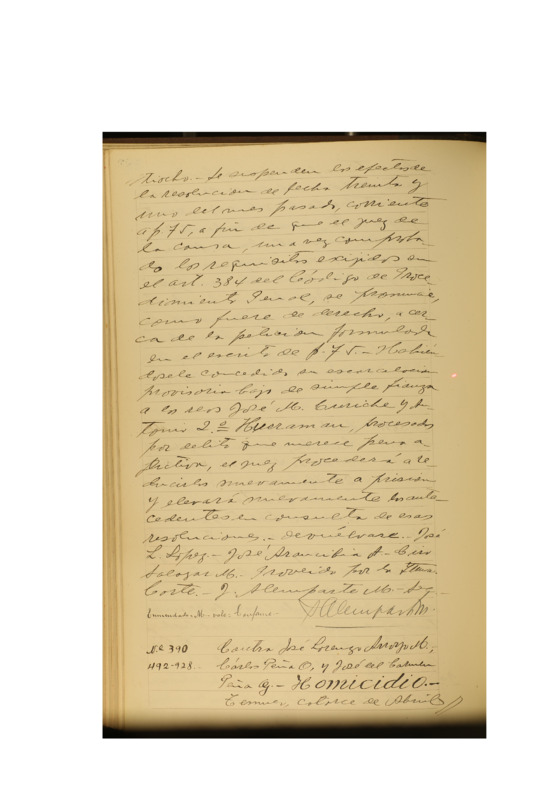 tiocho.- Se suspenden los efectos de
la resolucion de fecha treinta y
uno del mes pasado, corriente
a f. 75, a fin de que el juez de
la causa, una vez comproba-
do los requisitos exijidos en
el art. 384 del Código de Proce-
dimiento Penal, se pronuncie,
como fuere de derecho, acer-
ca de la peticion formulada
en el escrito de f. 75.- Habién-
dosele concedido su escarcelacion
provisoria bajo de simple fianza
a los reos José M. Curiche y An-
tonio 2.º Hueraman, procesados
por delito que merece pena a-
flictiva, el juez procederá a re-
ducirlos nuevamente a prision
y elevará nuevamente los ante-
cedentes en consulta de esas
resoluciones.- devuélvase.- José
L. Lopez.- José Arancibia A.- Ciro
Salazar M.- Proveido por la Iltma.
Corte.- J. Alemparte M.- Seg.
Enmendado-M-vale. Conforme.- Alemparte M.
N.º 390 Contra José Lorenzo Arroyo M.,
492-928 Carlos Peña O, y José del
Peña - Homicidio.-
Temuco, catorce de Abril